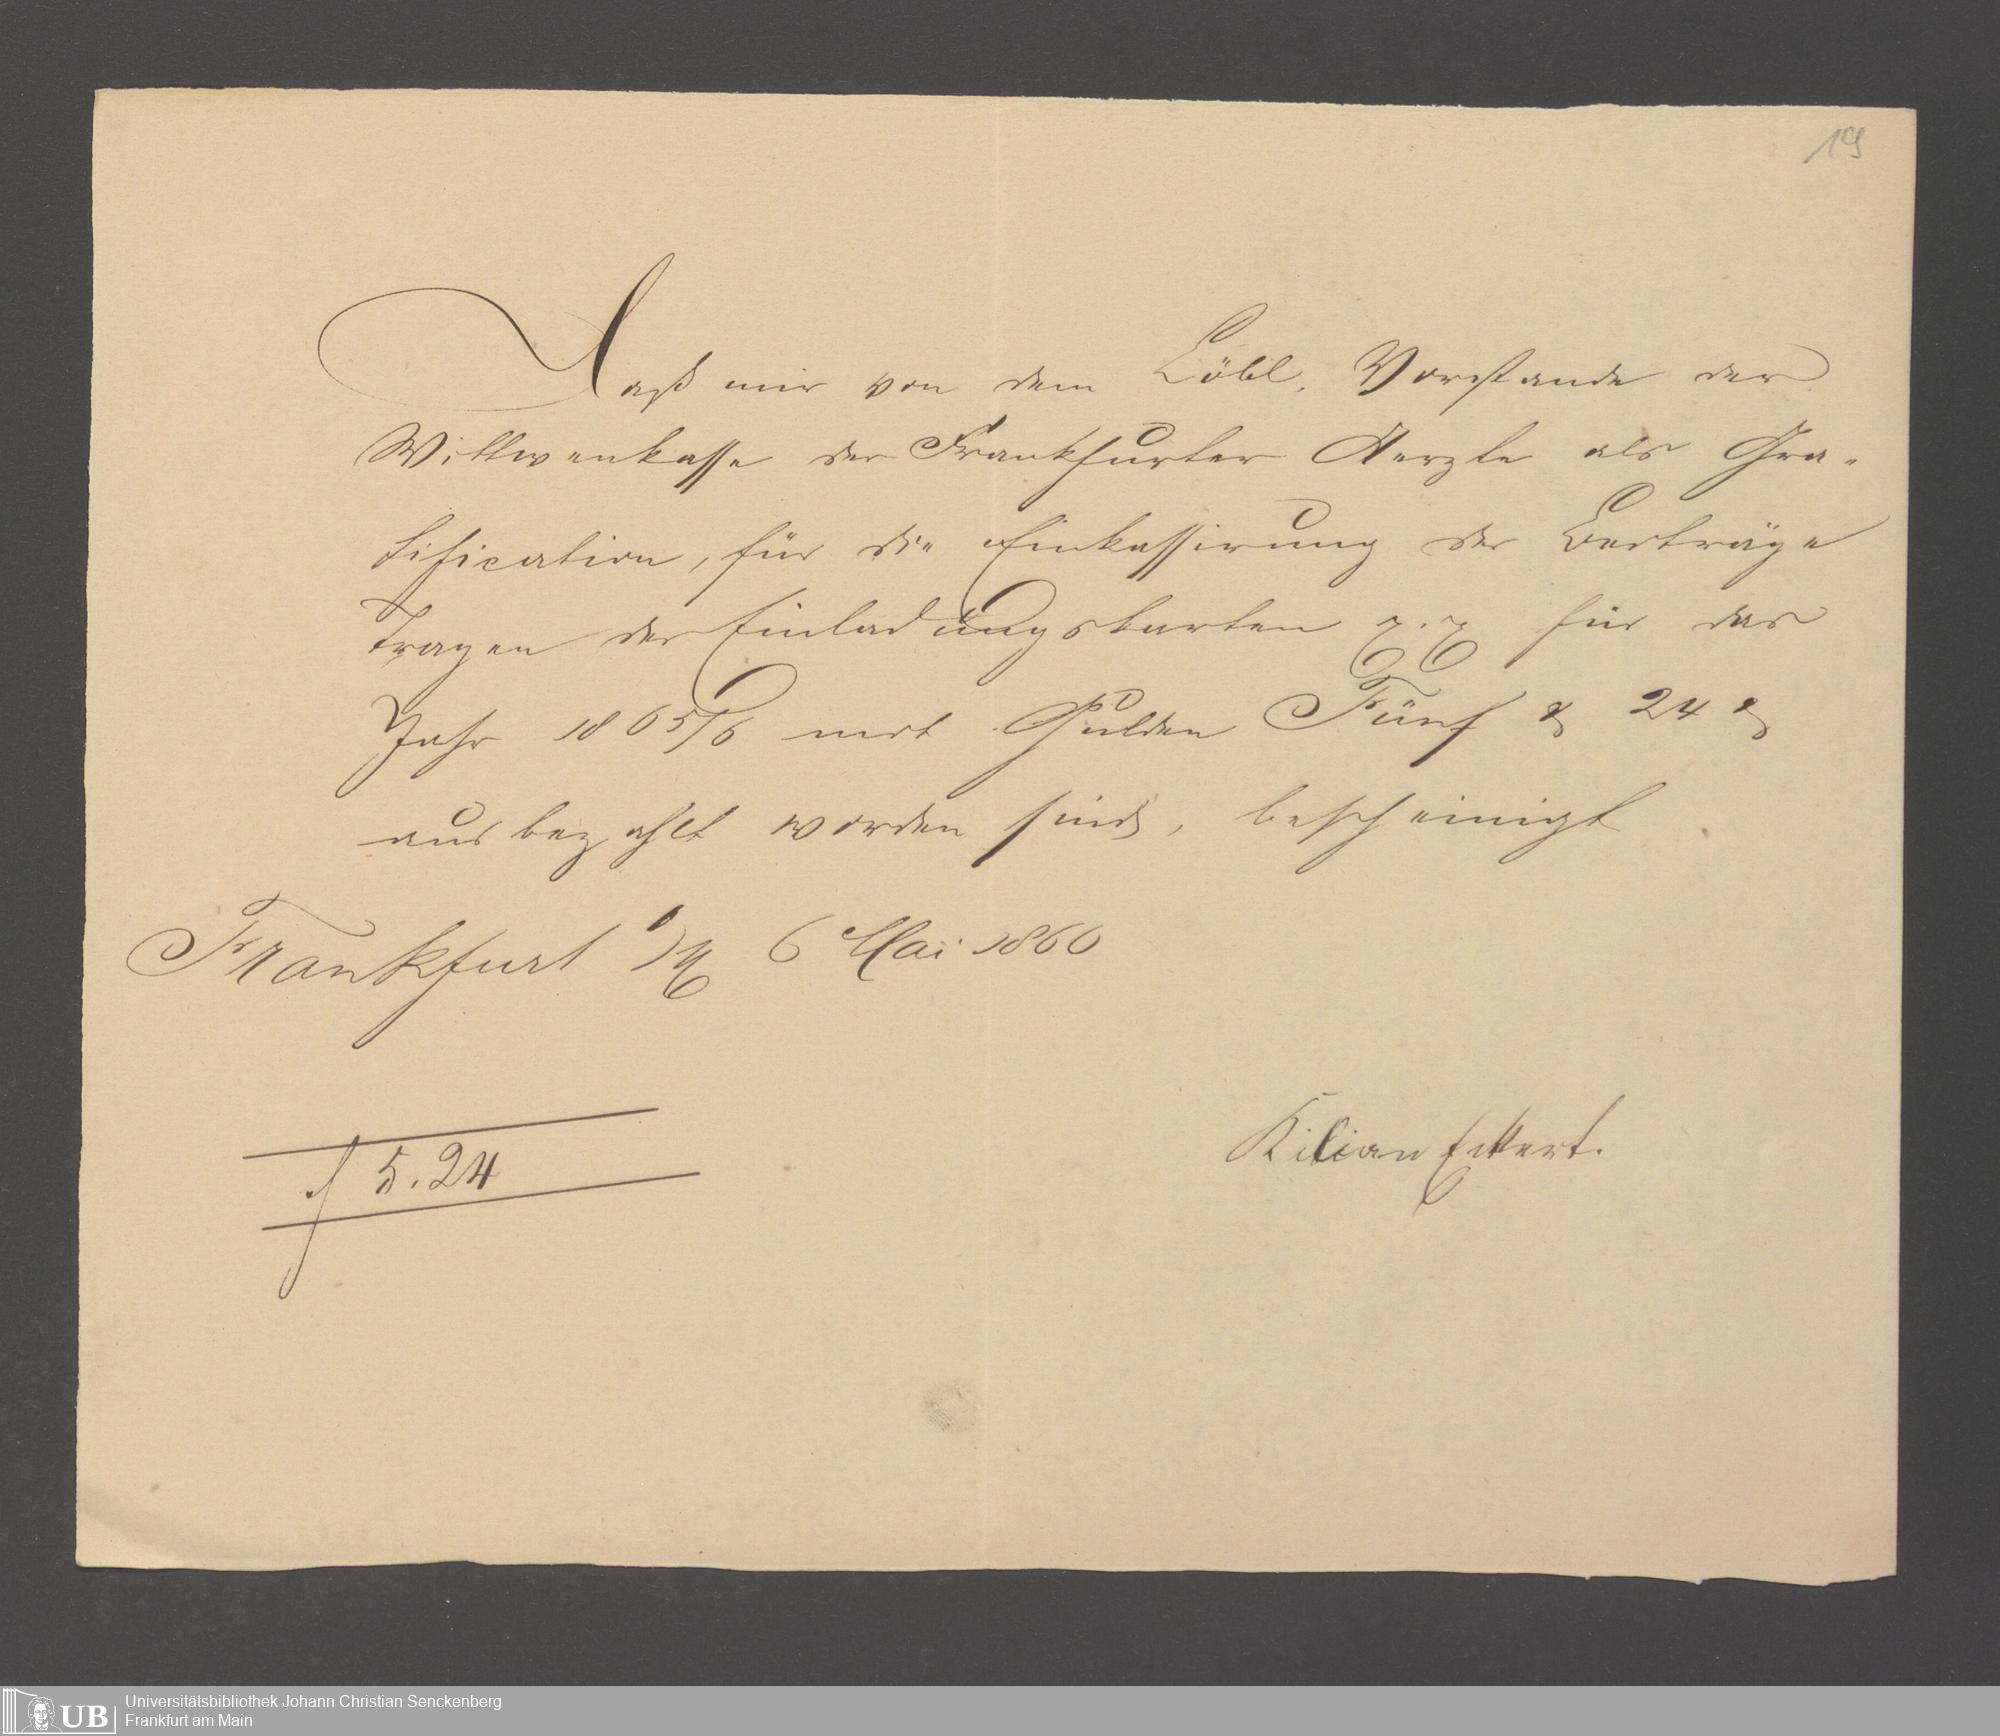 19
Daß mir von dem Löbl. Vorstande der
Wittwenkasse der Frankfurter Aerzte als Gra-
tification, für die Einkassirung der Beiträge
Tragen der Einladungskarten für das
Jahr 1865/6 mit Gulden Fünf & 24
ausbezahlt worden sind, bescheinigt
Frankfurt a/M 6 Mai 1866
f 5.24
Kilian Eckert.
UB Universitätsbibliothek Johann Christian Senckenberg
Frankfurt am Main